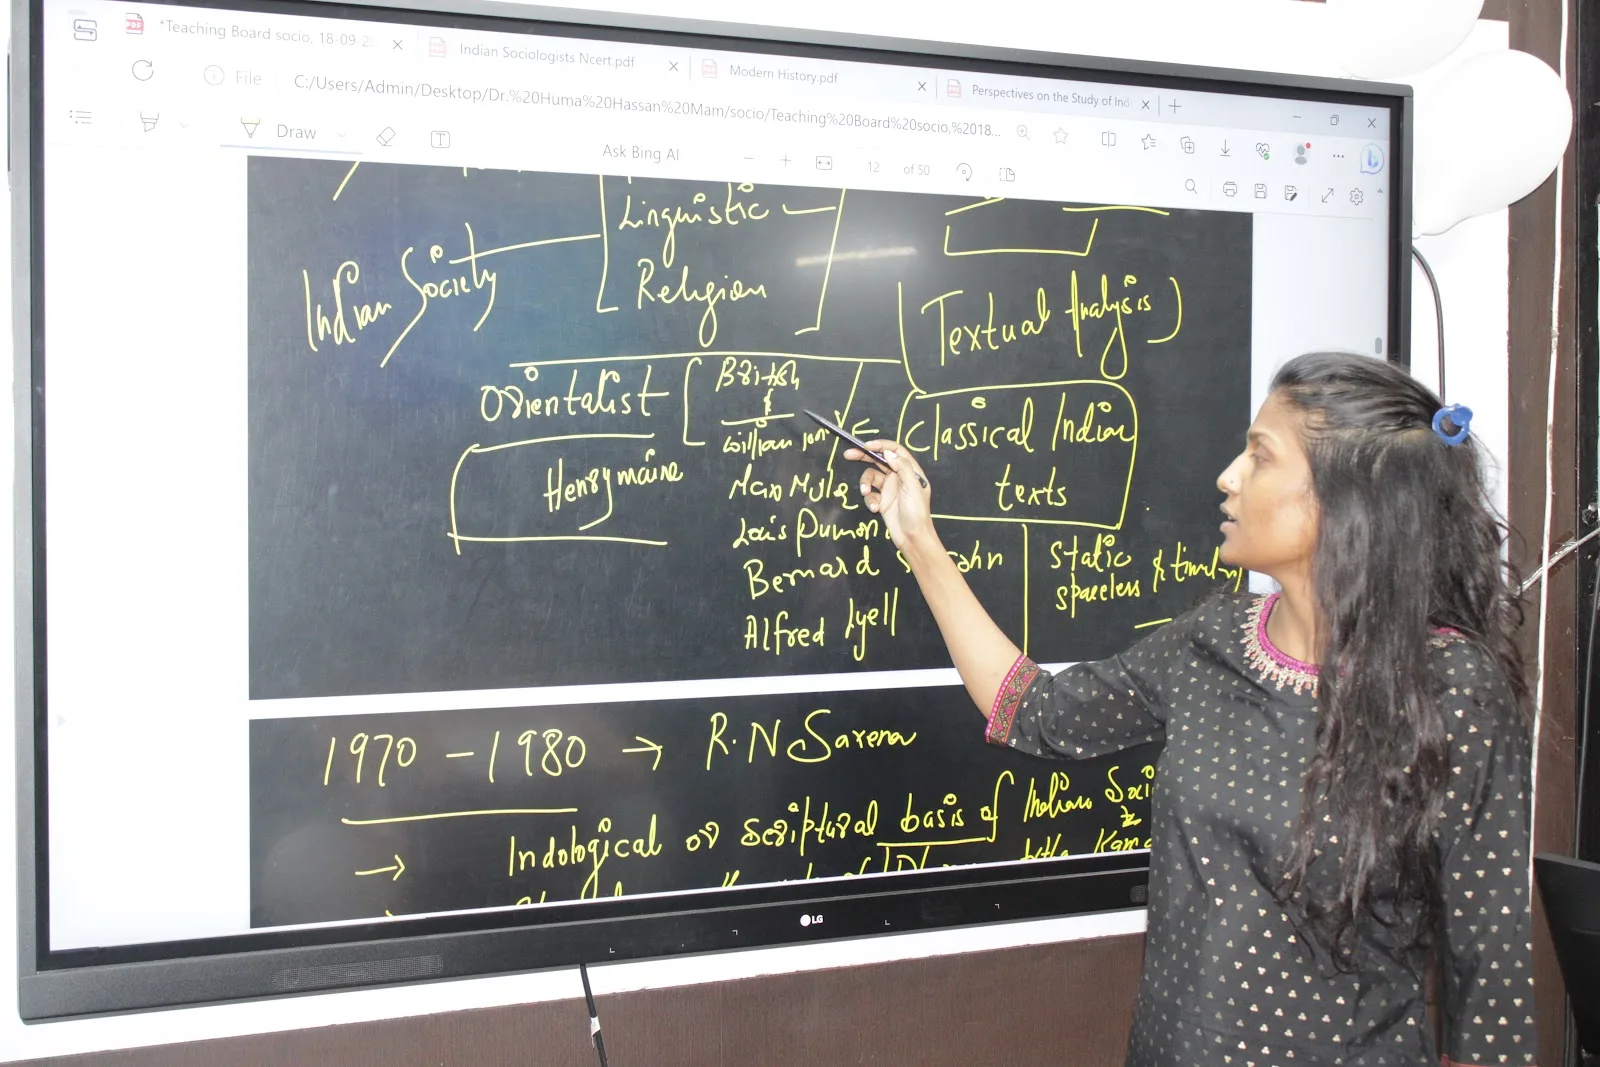 *Teaching Board socio, 18-09-2
Indian Sociologists Ncert.pdf
Modern History.pdf
Perspectives on the Study of Ind
File
C:/Users/Admin/Desktop/Dr.%20Huma%20Hassan%20Mam/socio/Teaching%20Board%20socio,%2018...
Draw
Ask Bing AI
12 of 50
Linguistic
Religion
Indian Society
Textual Analysis)
Orientalist
British
&
William Jon
Classical Indian
texts
Henrymaine
Max Mule
Louis Dumon
Bernard
ohn
Alfred Lyell
Static
spaceless &
1970 - 1980 → R.N Saxena
→ Indological or Scriptural basis of Indian Soci
Kama
LG